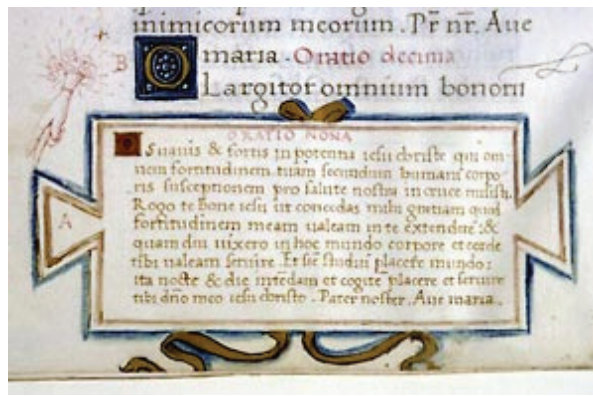 inimicorum meorum . Pr̄ nr̄. Aue
B
O maria . Oratio decima
Largitor omnium bonorū
ORATIO NONA
O Suauis & fortis in potentia iesu christe qui om
nem fortitudinem tuam secundum humani corpo
ris susceptionem pro salute nostra in cruce misisti.
Rogo te bone iesu ut concedas mihi gratiam quid
fortitudinem meam ualeam in te extendere :&
quam diu uixero in hoc mundo corpore et corde
tibi ualeam seruire . Et sic̄ studui placere mundo :
A
ita nocte & die intēdam et cogitē placere et seruire
tibi dn̄o meo iesu christo . Pater noster . Aue maria .